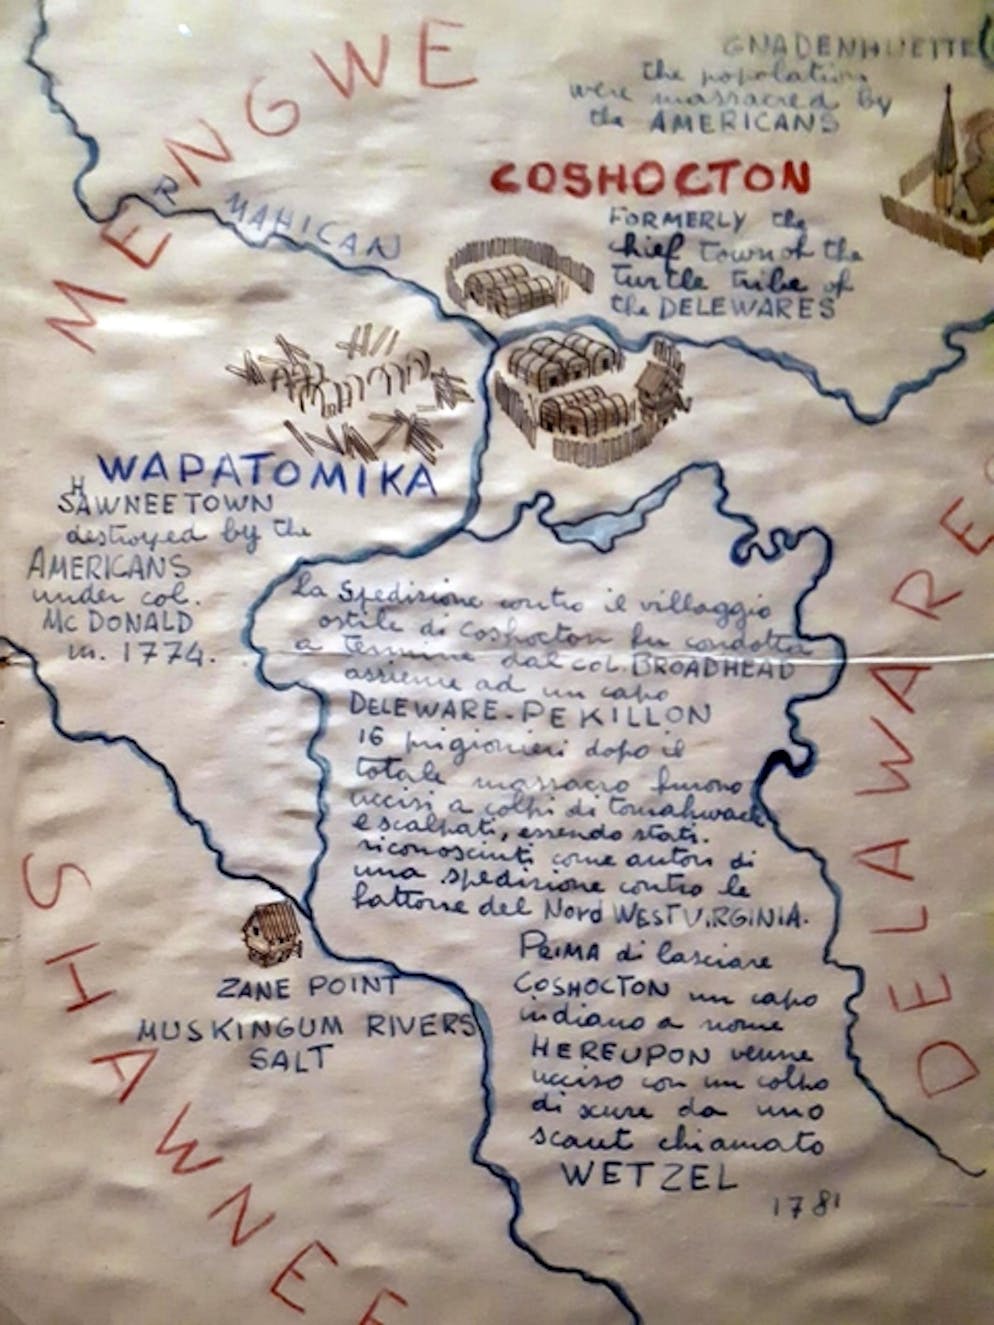 MENGWE
GNADENHUETTE
the population
were massacred by
the AMERICANS
COSHOCTON
FORMERLY the
chief Town of the
turtle tribe of
the DELEWARES
R MAHICAN
WAPATOMIKA
SHAWNEETOWN
destroyed by the
AMERICANS
under col.
Mc DONALD
in. 1774.
La Spedizione contro il villaggio
ostile di Coshocton fu condotta
a termine dal col. BROADHEAD
assieme ad un capo
DELEWARE-PEKILLON
16 prigionieri dopo il
totale massacro furono
uccisi a colpi di tomahwack
e scalpati, essendo stati.
riconosciuti come autori di
una spedizione contro le
fattorie del Nord WEST VIRGINIA.
PRIMA di lasciare
COSHOCTON un capo
indiano a nome
HEREUPON venne
ucciso con un colpo
di scure da uno
scaut chiamato
WETZEL
1781
ZANE POINT
MUSKINGUM RIVERS
SALT
SHAWNEE
DELAWARE